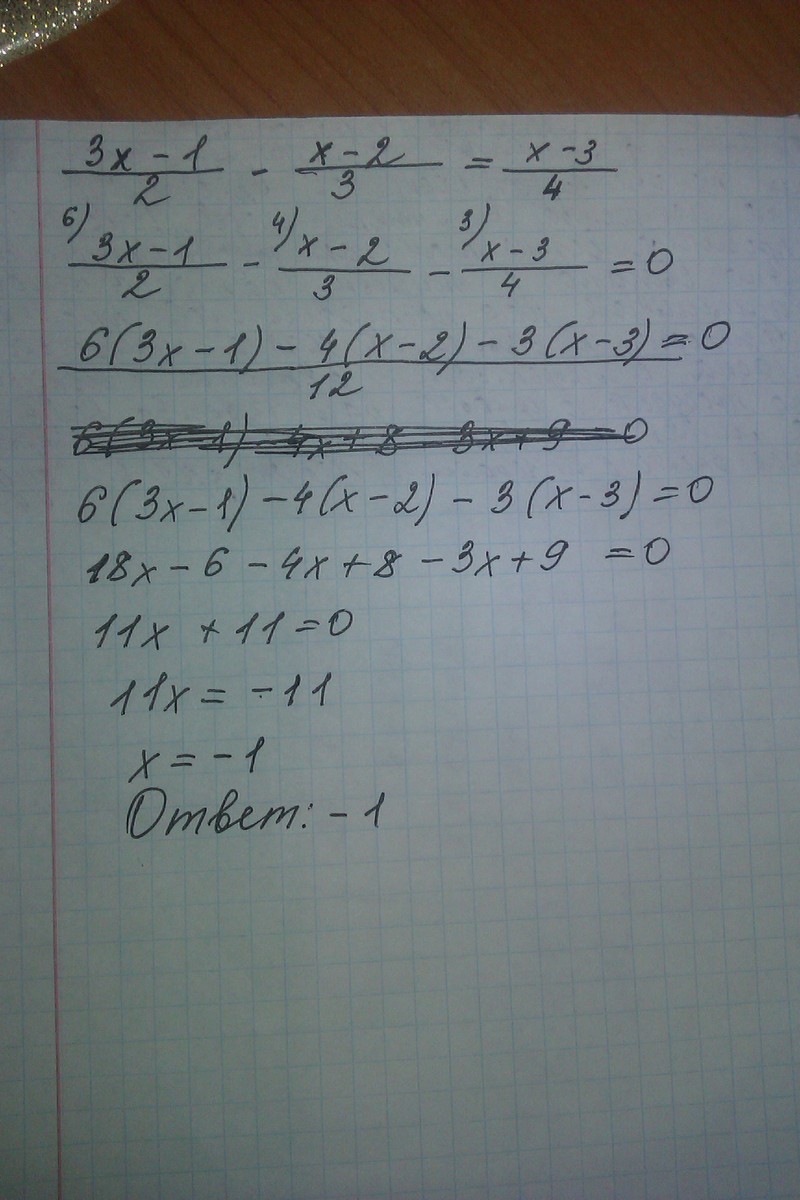 (3x-1)/2 - (x-2)/3 = (x-3)/4
6) (3x-1)/2 - 4) (x-2)/3 - 3) (x-3)/4 = 0
(6(3x-1) - 4(x-2) - 3(x-3))/12 = 0
6(3x-1) - 4x+8 - 3x+9 = 0
6(3x-1) - 4(x-2) - 3(x-3) = 0
18x - 6 - 4x + 8 - 3x + 9 = 0
11x + 11 = 0
11x = -11
x = -1
Ответ: -1